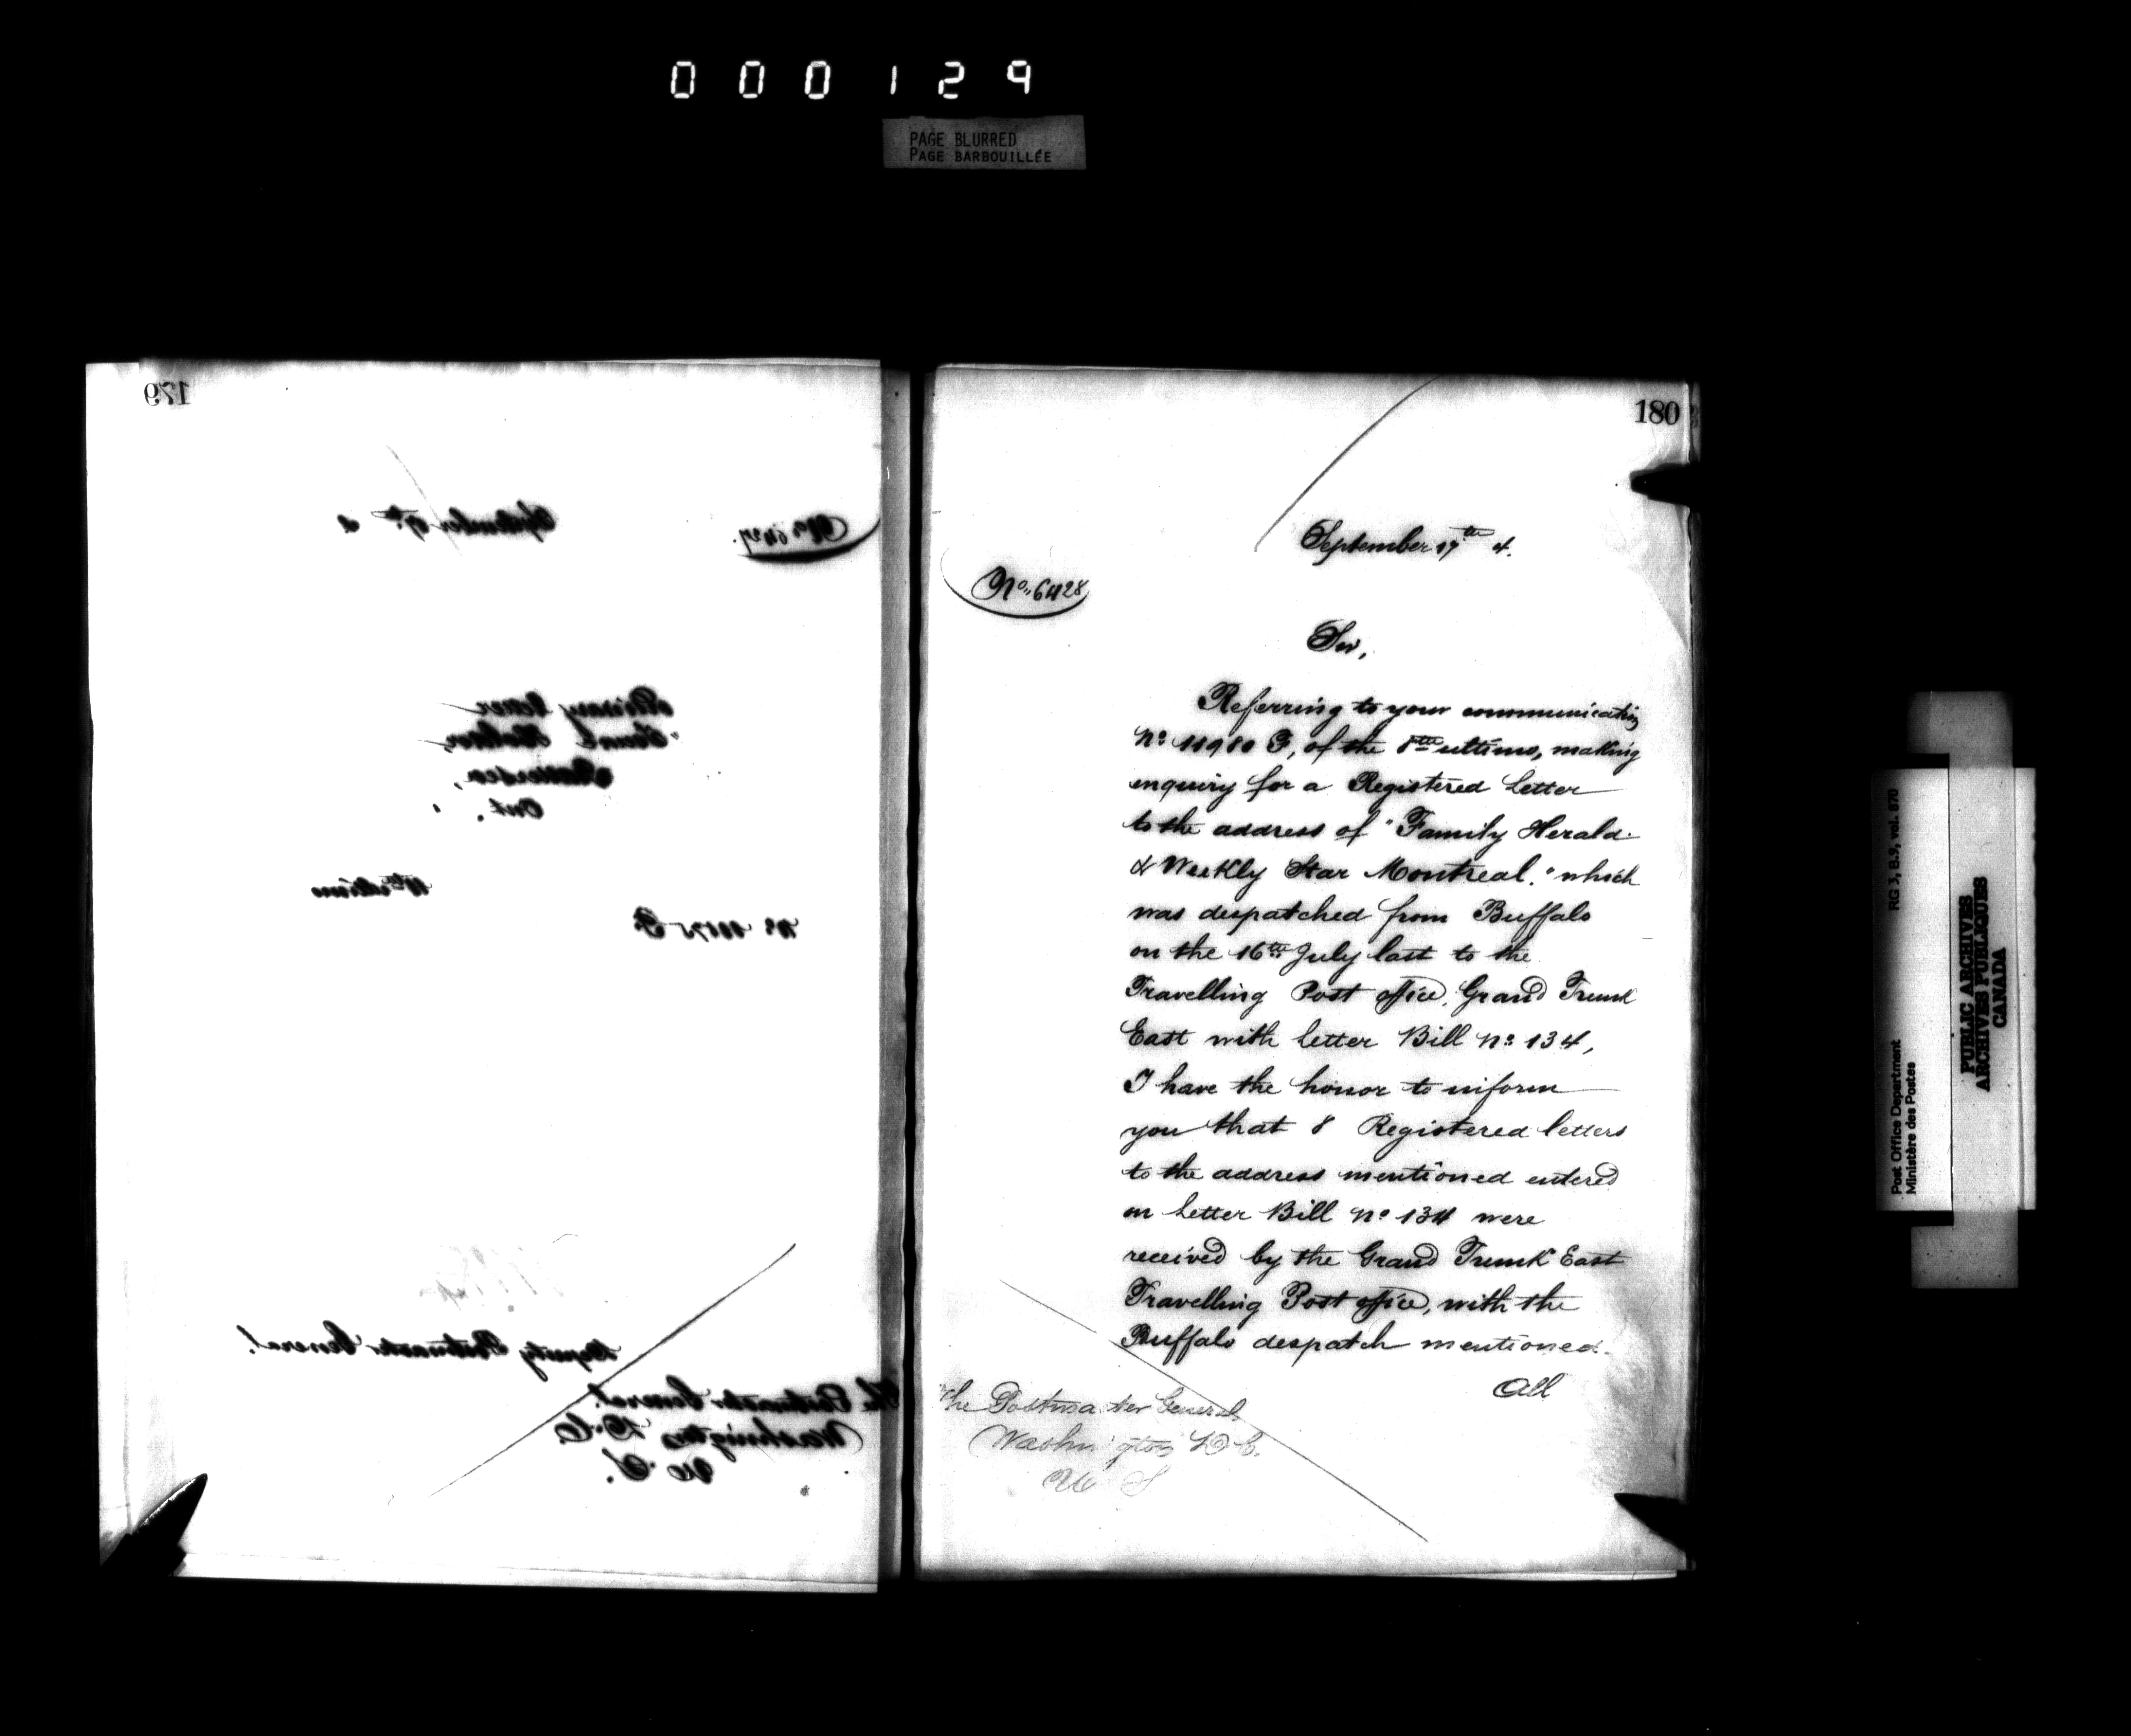 000129
PAGE BLURRED
PAGE BARBOUILLÉE
179
No 6427.
September 17th 4
Ordinary letter
Ont.
ultimo
No F.
Deputy Postmaster General.
The Postmaster General.
Washington D.C.
U.S.
180
September 17th 4.
No. 6428
Sir,
Referring to your communication
No 11980 F, of the 8th ultimo, making
enquiry for a Registered letter
to the address of "Family Herald
& Weekly Star Montreal." which
was despatched from Buffalo
on the 16th July last to the
Travelling Post office, Grand Trunk
East with letter Bill No 134,
I have the honor to inform
you that 8 Registered letters
to the address mentioned entered
on letter Bill No 134 were
received by the Grand Trunk East
Travelling Post office, with the
Buffalo despatch mentioned.
All
The Postmaster General
Washington D.C.
U S
Post Office Department RG 3, B.9, vol. 870
Ministère des Postes
PUBLIC ARCHIVES
ARCHIVES PUBLIQUES
CANADA